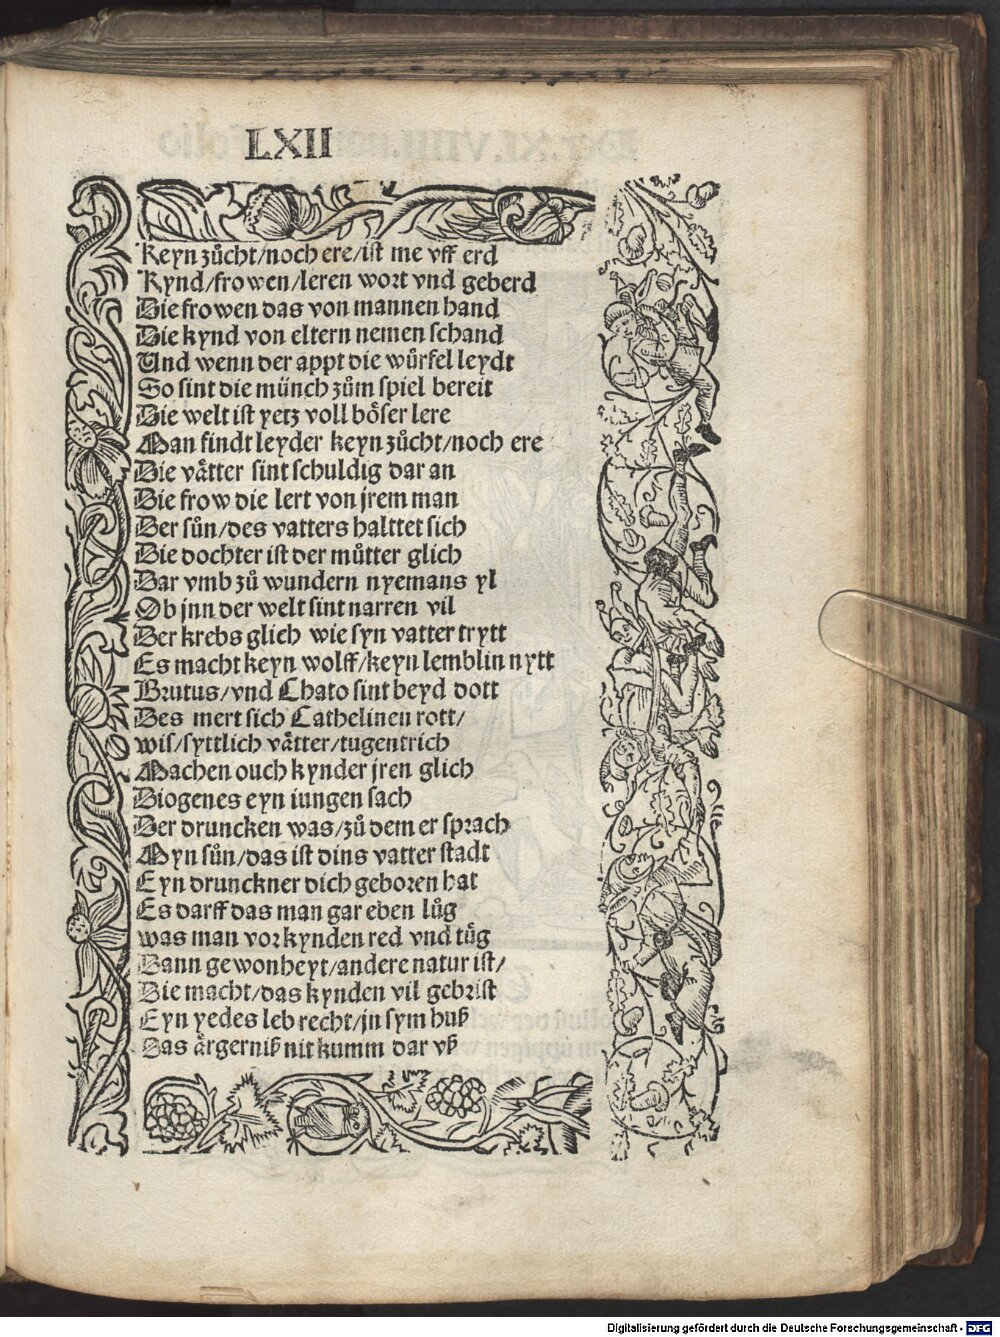 LXII
Keyn zůcht/noch ere/ist me vff erd
Kynd/frowen/leren wort vnd geberd
Die frowen das von mannen hand
Die kynd von eltern nemen schand
Und wenn der appt die würfel leydt
So sint die münch zům spiel bereit
Die welt ist yetz voll böser lere
Man findt leyder keyn zůcht/noch ere
Die vätter sint schuldig dar an
Die frow die lert von jrem man
Der sůn/des vatters halttet sich
Die dochter ist der můtter glich
Dar vmb zů wundern nyemans yl
Ob jnn der welt sint narren vil
Der krebs glich wie syn vatter trytt
Es macht keyn wolff/keyn lemblin nytt
Brutus/vnd Chato sint beyd dott
Des mert sich Cathelinen rott/
wis/syttlich vätter/tugentrich
Machen ouch kynder jren glich
Diogenes eyn iungen sach
Der druncken was/zů dem er sprach
Myn sůn/das ist dins vatter stadt
Eyn drunckner dich geboren hat
Es darff das man gar eben lůg
was man vor kynden red vnd tüg
Dann gewonheyt/andere natur ist/
Die macht/das kynden vil gebrist
Eyn yedes leb recht/jn sym huß
Das ärgerniß nit kumm dar vß
Digitalisierung gefördert durch die Deutsche Forschungsgemeinschaft - DFG